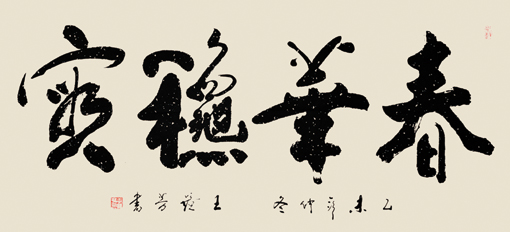 春華穐實
乙未年仲冬 王 芳書